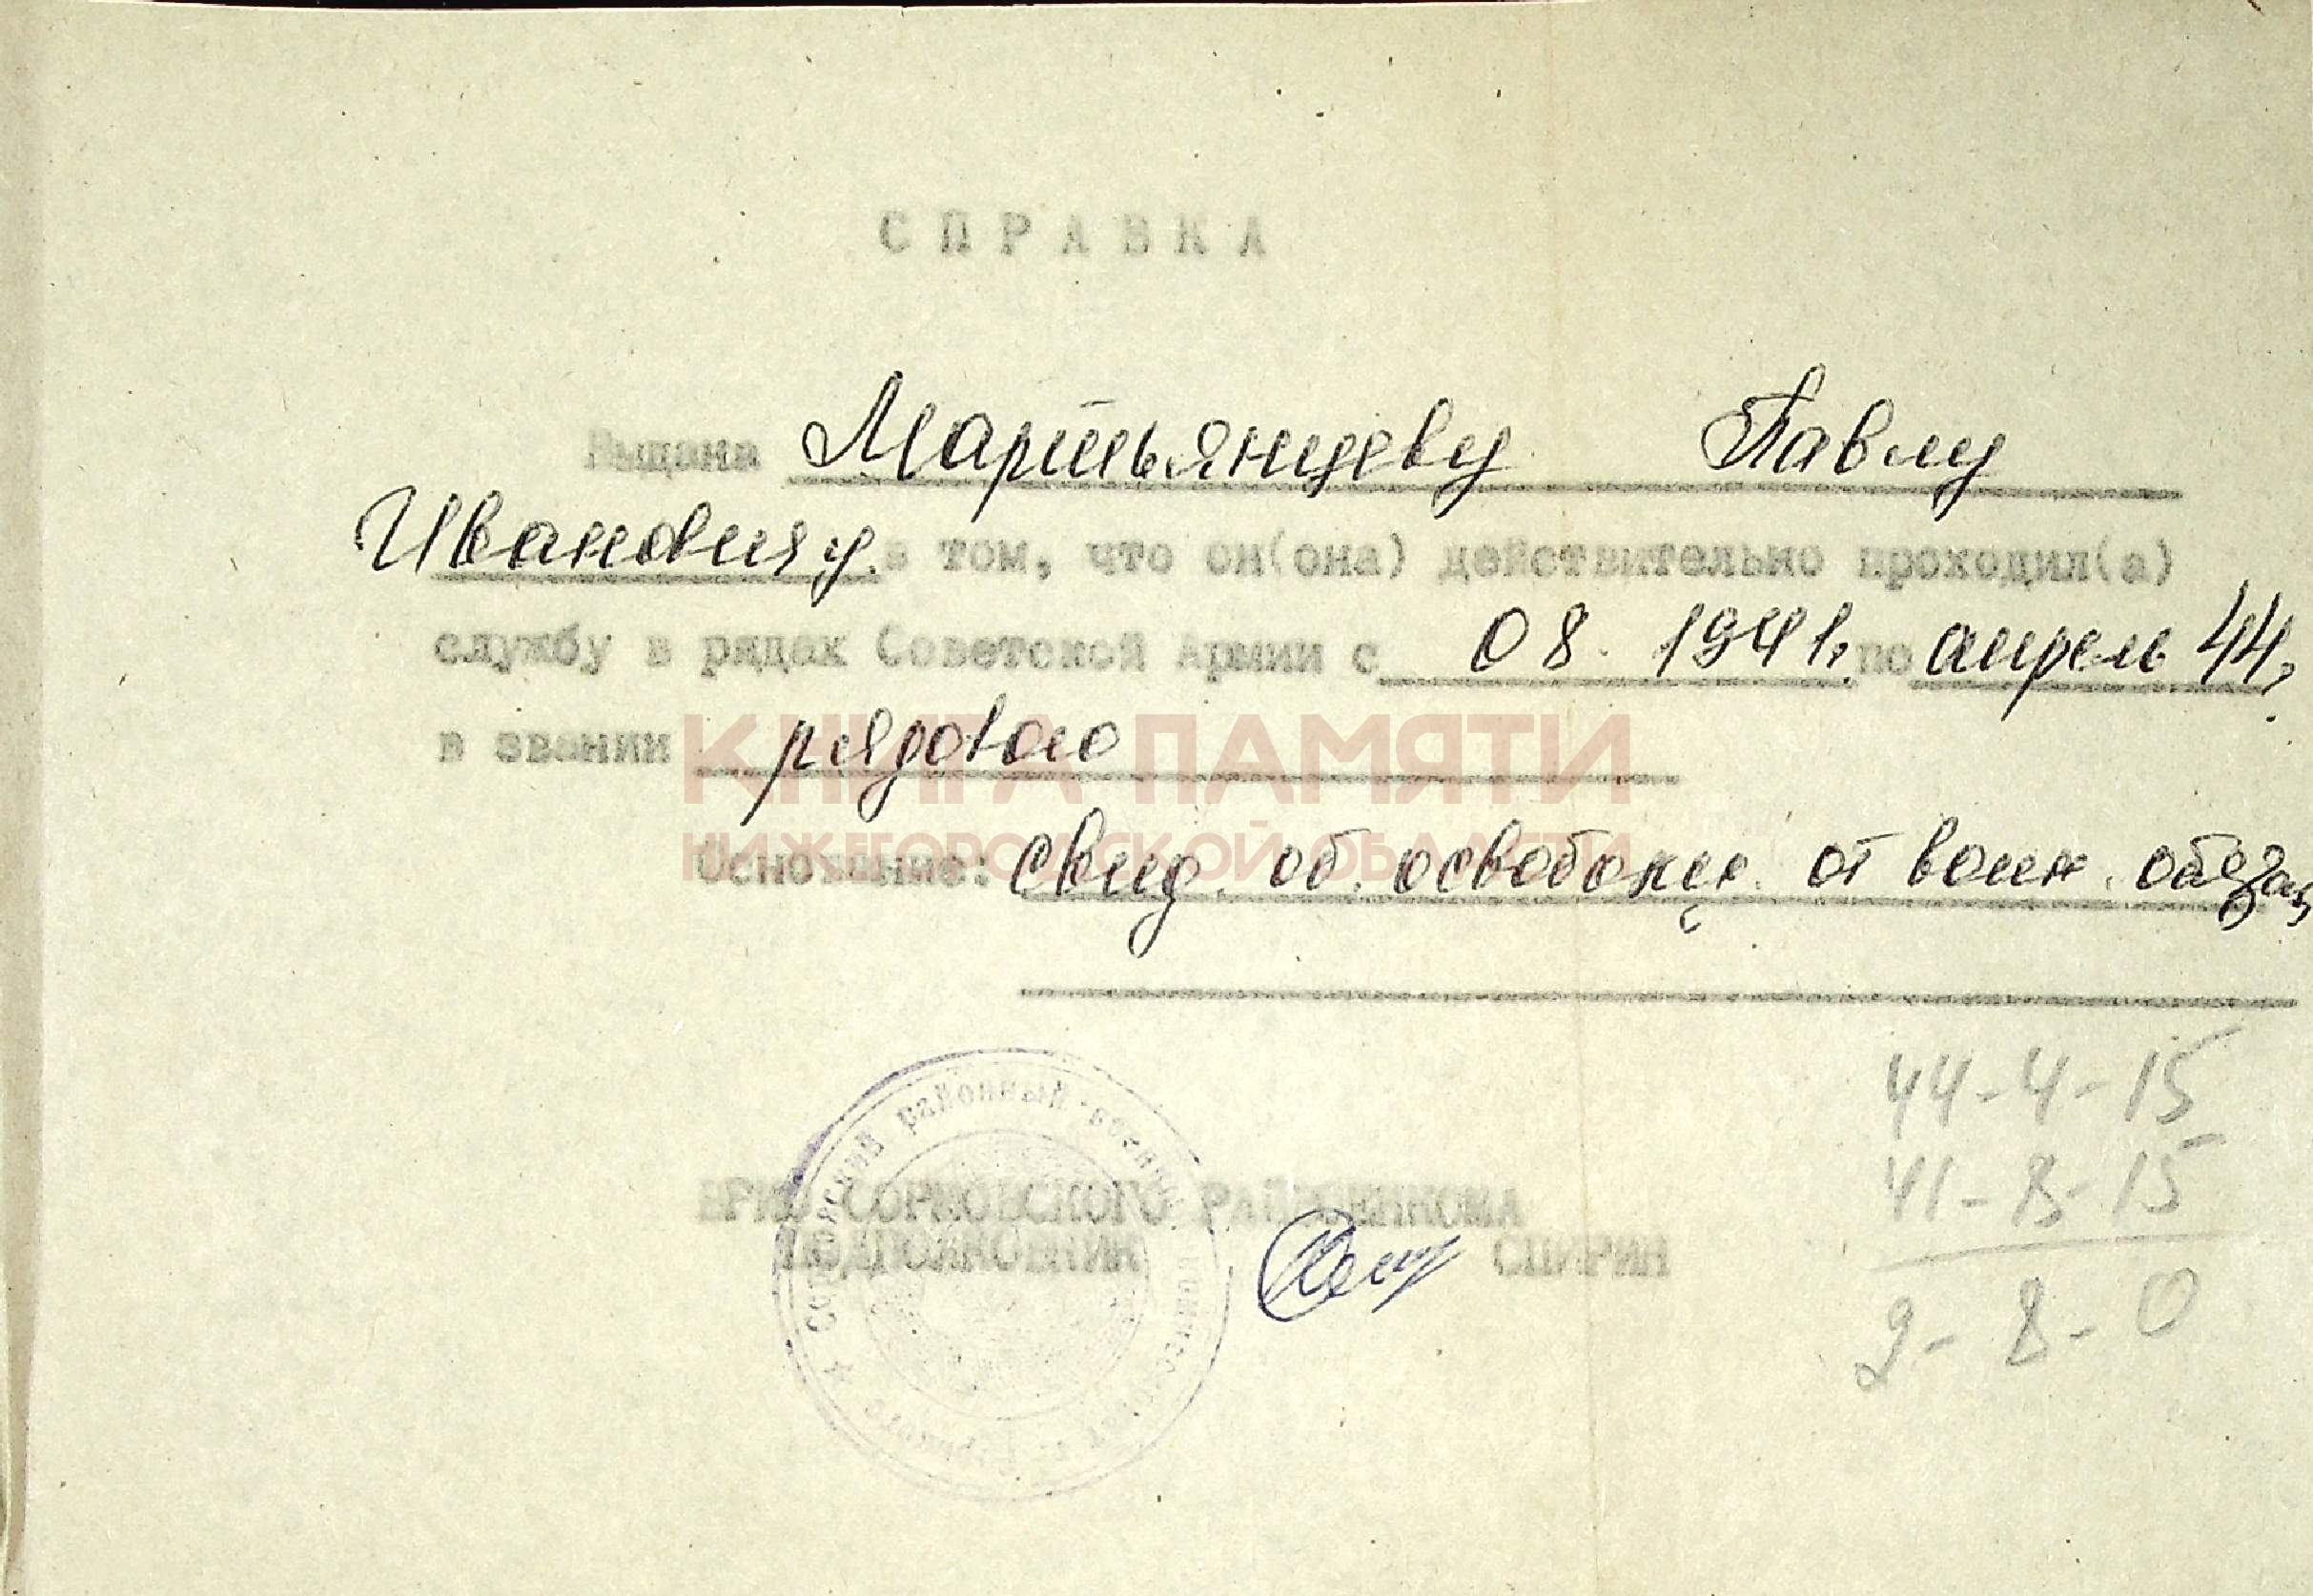 СПРАВКА
Выдана Мартьянцеву Павлу
Ивановичу в том, что он(она) действительно проходил(а)
службу в рядах Советской Армии с 08. 1941г. по апрель 44г.
в звании рядового
КНИГА ПАМЯТИ
НИЖЕГОРОДСКОЙ ОБЛАСТИ
Основание: Свид. об. освобожд. от воин. обязан
44-4-15
41-8-15
2-8-0
ВРИО СОРМОВСКОГО РАЙВОЕНКОМА
ПОДПОЛКОВНИК СПИРИН
Сормовский районный военный комиссариат г. Горького